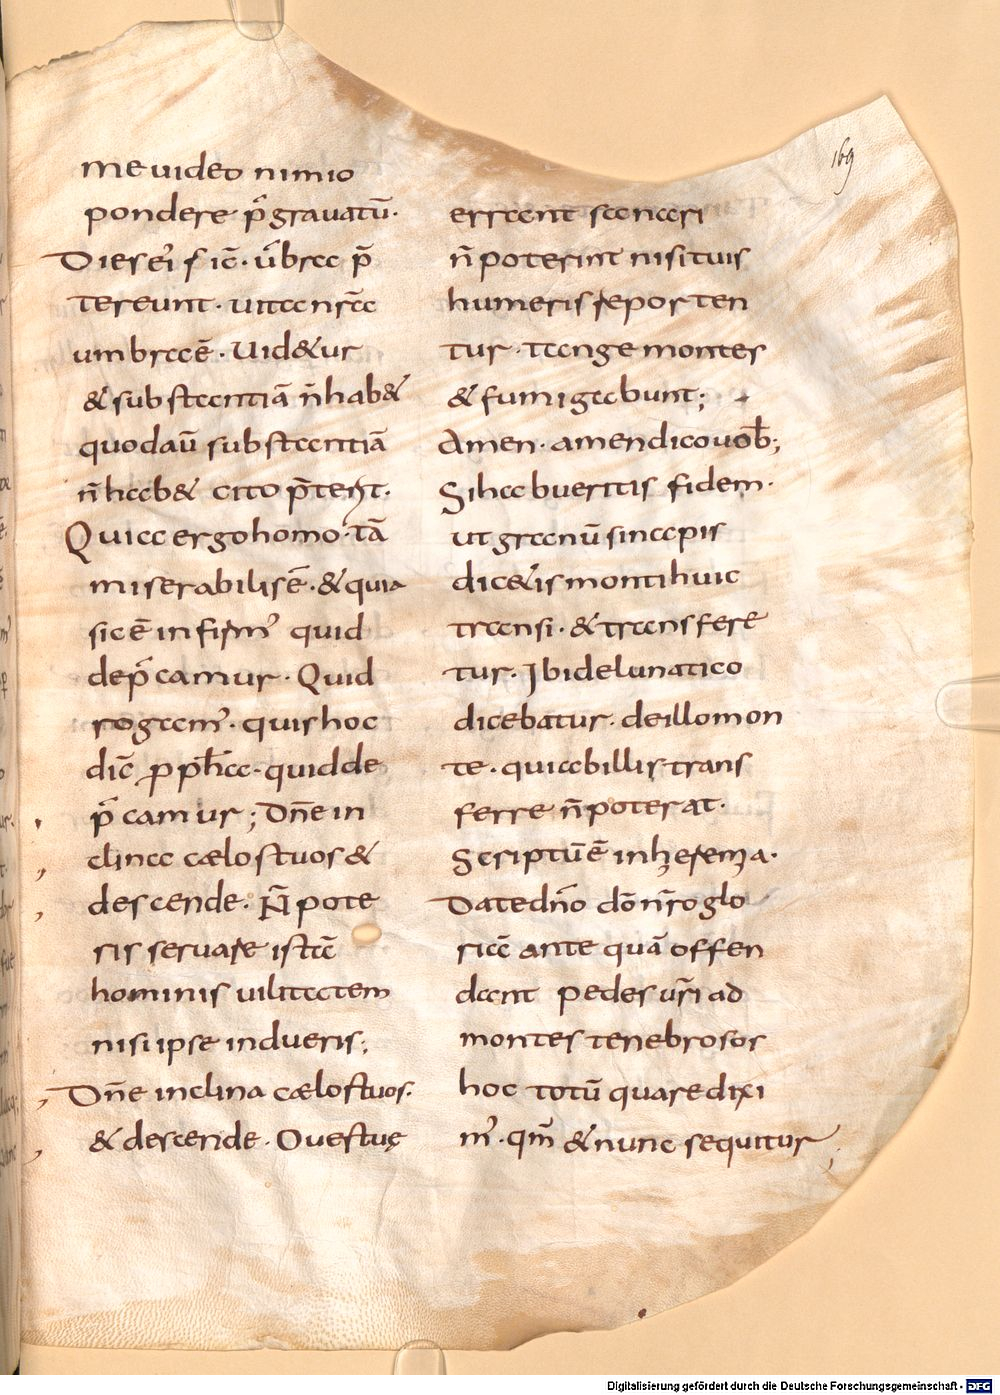 169
me uideo nimio
pondere p̄grauatū·
Dies ei' sic̄· ūbrae p̄
tereunt· uitae nr̄ae
umbrae ē· Uid&ur
& substantiā n̄ hab&
quod aū substantiā
n̄ hab& cito p̄terit·
Quia ergo homo· tā
miserabilis ē· & quia
sic ē infirm' quid
dep̄camur· Quid
rogam'· quis hoc
dic̄ p ph̄a· quid de
p̄camur; Dn̄e in
clina cælos tuos &
descende· N̄ pote
ris seruare istā
hominis uilitatem
nisi ipse indueris;
Dn̄e inclina cælos tuos·
& descende· Oues tuę
errant sanari
n̄ poterint nisi tuis
humeris repor ten
tur· tange montes
& fumigabunt;
Amen· amen dico uob̄;
Si habueritis fidem·
ut granū sinapis
dic&is monti huic
transi· & transfere
tur· Ibi de lunatico
dicebatur· de illo mon
te· qui ab illis trans
ferre n̄ poterat·
Scriptū ē in hieremia·
Date dn̄o dō nr̄o glo
riā ante quā offen
dant pedes ur̄i ad
montes tenebrosos
hoc totū quare dixi
m'· qm̄ & nunc sequitur;
Digitalisierung gefördert durch die Deutsche Forschungsgemeinschaft - DFG